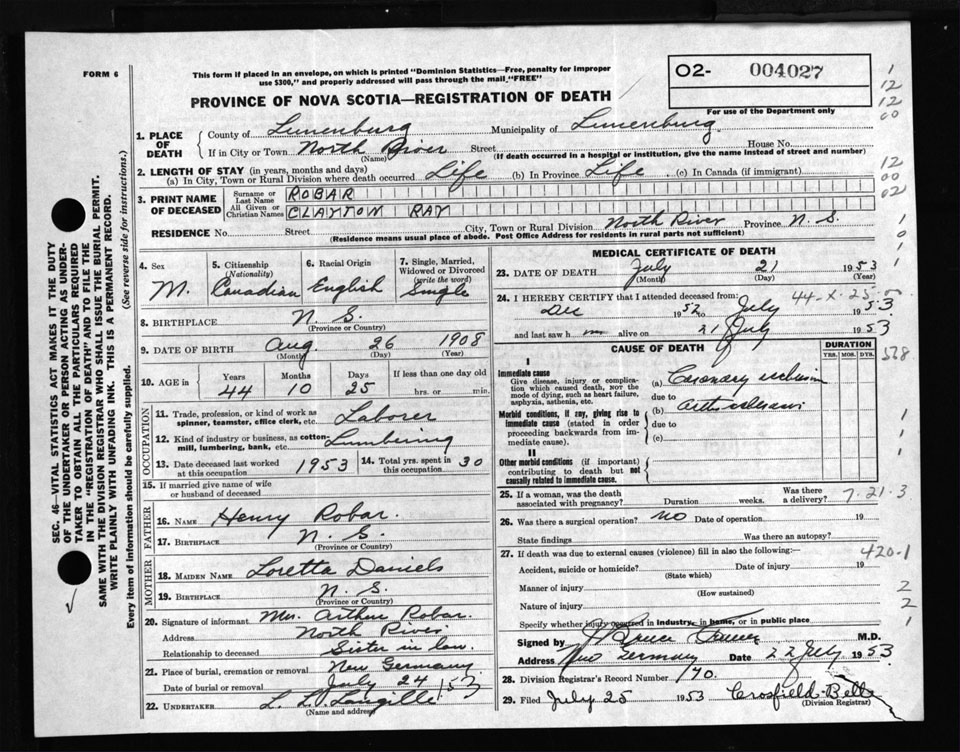 FORM 6
This form if placed in an envelope, on which is printed "Dominion Statistics—Free, penalty for improper
use $300," and properly addressed will pass through the mail "FREE"
PROVINCE OF NOVA SCOTIA—REGISTRATION OF DEATH
02- 004027
For use of the Department only
1. PLACE OF DEATH County of Lunenburg Municipality of Lunenburg
If in City or Town North River Street House No.
(Name) (If death occurred in a hospital or institution, give the name instead of street and number)
2. LENGTH OF STAY (in years, months and days)
(a) In City, Town or Rural Division where death occurred Life (b) In Province Life (c) In Canada (if immigrant)
3. PRINT NAME OF DECEASED
Surname or Last Name ROBAR
All Given or Christian Names CLAYTON RAY
RESIDENCE No. Street City, Town or Rural Division North River Province N. S.
(Residence means usual place of abode. Post Office Address for residents in rural parts not sufficient)
4. Sex M.
5. Citizenship (Nationality) Canadian
6. Racial Origin English
7. Single, Married, Widowed or Divorced (write the word) Single
8. BIRTHPLACE N. S.
(Province or Country)
9. DATE OF BIRTH Aug 26 1908
(Month) (Day) (Year)
10. AGE in Years Months Days If less than one day old
44 10 25 hrs. or min.
OCCUPATION
11. Trade, profession, or kind of work as spinner, teamster, office clerk, etc. Laborer
12. Kind of industry or business, as cotton-mill, lumbering, bank, etc. Lumbering
13. Date deceased last worked at this occupation 1953
14. Total yrs. spent in this occupation 30
15. If married give name of wife or husband of deceased
FATHER
16. NAME Henry Robar.
17. BIRTHPLACE N. S.
(Province or Country)
MOTHER
18. MAIDEN NAME Loretta Daniels
19. BIRTHPLACE N. S.
(Province or Country)
20. Signature of informant Mrs. Arthur Robar.
Address North River
Relationship to deceased Sister in law.
21. Place of burial, cremation or removal New Germany
Date of burial or removal July 24/53
22. UNDERTAKER Langille
(Name and address)
MEDICAL CERTIFICATE OF DEATH
23. DATE OF DEATH July 21 1953
(Month) (Day) (Year)
24. I HEREBY CERTIFY that I attended deceased from:
Dec 1952 to July 1953
and last saw h im alive on 21 July 1953
CAUSE OF DEATH
DURATION
YRS. MOS. DYS.
I
Immediate cause
Give disease, injury or complication which caused death, NOT the mode of dying, such as heart failure, asphyxia, asthenia, etc.
(a) Coronary occlusion
due to
Morbid conditions, if any, giving rise to immediate cause (stated in order proceeding backwards from immediate cause).
(b)
due to
(c)
II
Other morbid conditions (if important) contributing to death but not causally related to immediate cause.
25. If a woman, was the death associated with pregnancy? Duration weeks. Was there a delivery?
26. Was there a surgical operation? no Date of operation 19
State findings Was there an autopsy?
27. If death was due to external causes (violence) fill in also the following:—
Accident, suicide or homicide? Date of injury 19
(State which)
Manner of injury
(How sustained)
Nature of injury
Specify whether injury occurred in industry, in home, or in public place
Signed by M.D.
Address New Germany Date 22 July 1953.
28. Division Registrar's Record Number 170.
29. Filed July 25 1953 Crosfield Belle
(Division Registrar)
SEC. 46—VITAL STATISTICS ACT MAKES IT THE DUTY
OF THE UNDERTAKER OR PERSON ACTING AS UNDER-
TAKER TO OBTAIN ALL THE PARTICULARS REQUIRED
IN THE "REGISTRATION OF DEATH" AND TO FILE THE
SAME WITH THE DIVISION REGISTRAR WHO SHALL ISSUE THE BURIAL PERMIT.
WRITE PLAINLY WITH UNFADING INK. THIS IS A PERMANENT RECORD.
Every item of information should be carefully supplied. (See reverse side for instructions.)
1
12
12
00
12
00
02
1
0
1
44-X-25-
528
1
1
1
7.21.3
420.1
2
2
1